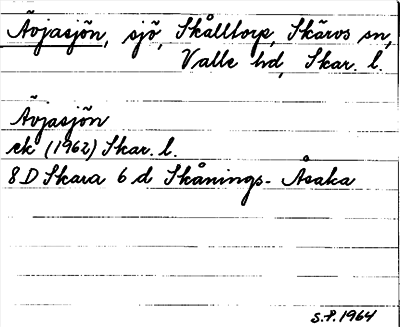 Ävjasjön, sjö, Skålltorp, Skärvs sn,
Valle hd, Skar. l.
Ävjasjön
ek (1962) Skar. l.
8 D Skara 6 d Skånings-Åsaka
S.F. 1964